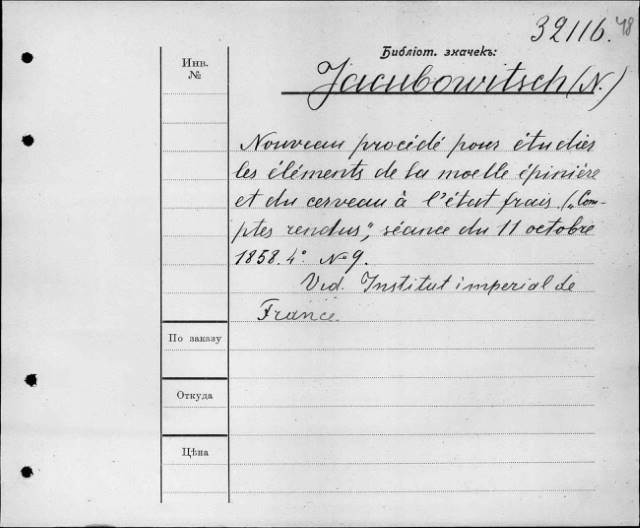 32116.48
Библіот. значекъ:
Инв.
№
Jacubowitsch (N.)
Nouveau procédé pour étudier
les éléments de la moelle épinière
et du cerveau à l'état frais. („Com-
ptes rendus“, séance du 11 octobre
1858. 4° № 9.
Vid. Institut imperial de
France.
По заказу
Откуда
Цѣна